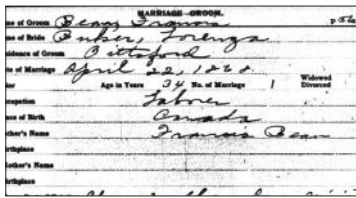 MARRIAGE—GROOM.
me of Groom Beany Francis p 56
me of Bride Buker, Lorenza
sidence of Groom Pittsford
te of Marriage April 22, 1868
lor Age in Years 34 No. of Marriage 1 Widowed Divorced
cupation Laborer
ace of Birth Canada
ther's Name Francis Bean
rthplace
other's Name
irthplace